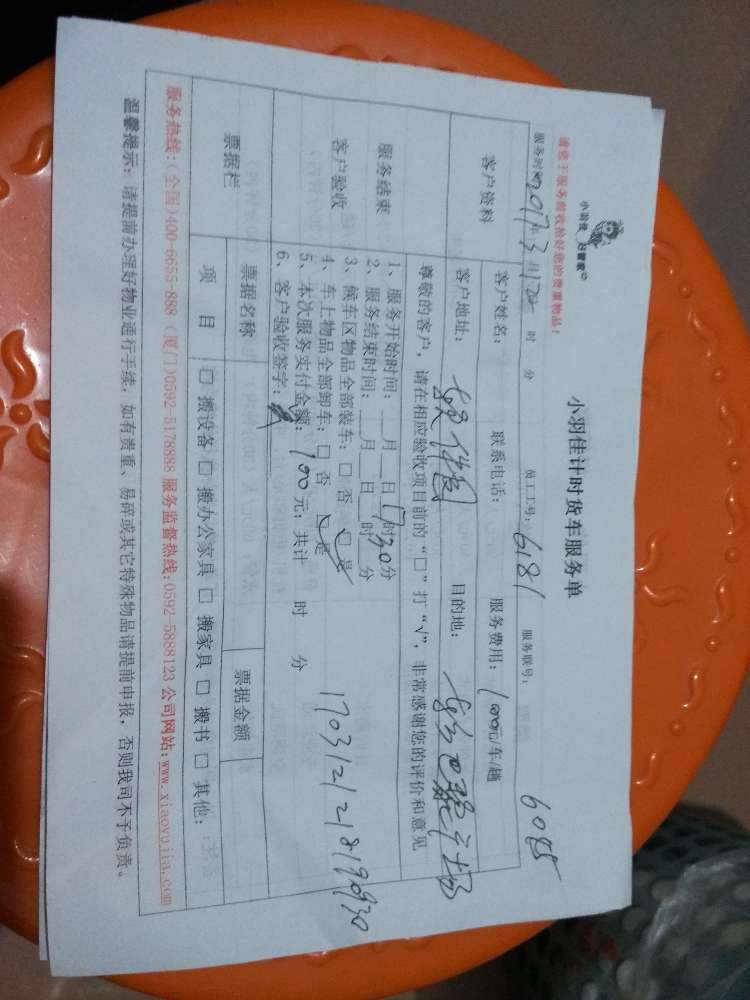 小羽佳 好管家
请您于服务前收拾好您的贵重物品!
小羽佳计时货车服务单
服务时间: 2017年3月12日 时 分 员工工号: 6181 服务联号: 6085
客户资料
客户姓名: 联系电话: 服务费用: 100元/车/趟
客户地址: 目的地:
尊敬的客户,请在相应验收项目前的“口”打“√”,非常感谢您的评价和意见
服务结束
客户验收
1、服务开始时间: 月 日 17时30分
2、服务结束时间: 月 日 时 分
3、候车区物品全部装车: □ 否 □ 是
4、车上物品全部卸车: □ 否 □ 是
5、本次服务实付金额: 100元; 共计 时 分
6、客户验收签字:
票据栏
票据名称 票据金额
项 目 □ 搬设备 □ 搬办公家具 □ 搬家具 □ 搬书 □ 其他:
服务热线:(全国)400-6655-888 (厦门)0592-5178888 服务监督热线:0592-5888123 公司网站:www.xiaoyujia.com
温馨提示: 请提前办理好物业通行手续, 如有贵重、易碎或其它特殊物品请提前申报, 否则我司不予负责。